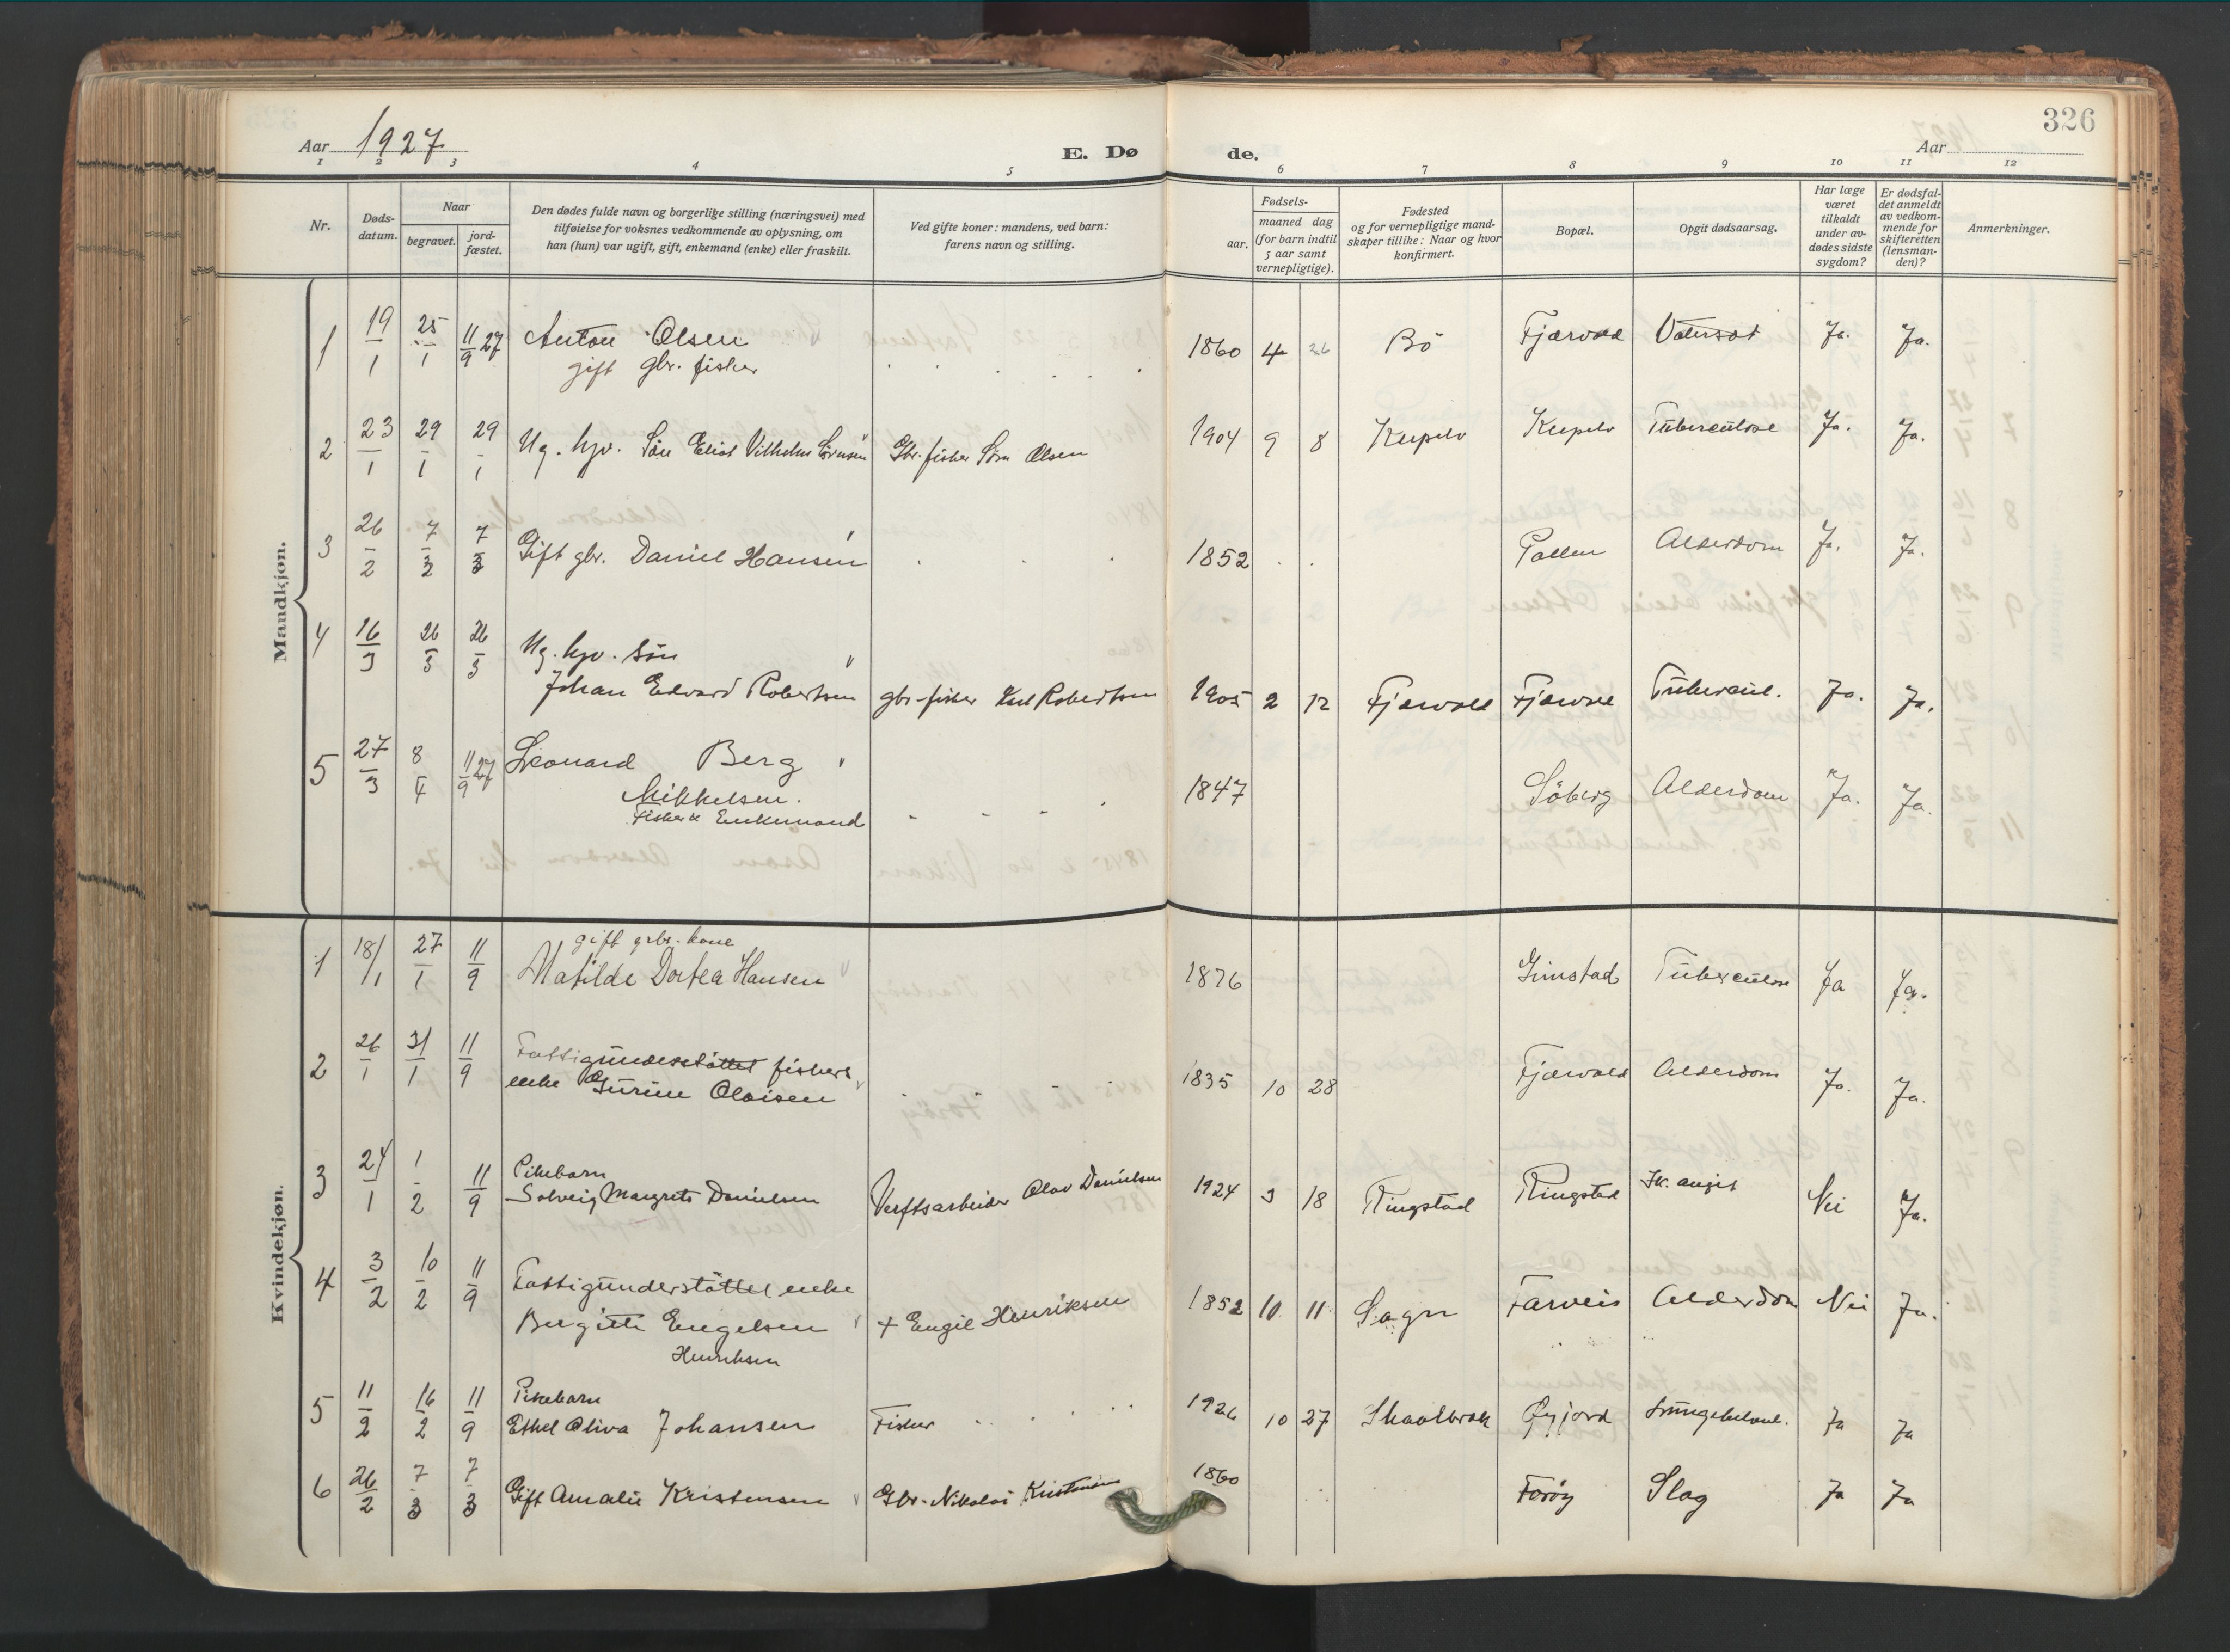 326
Aar 1927
E. Dø de.
Aar
1 2 3 4 5 6 7 8 9 10 11 12
Nr.
Døds-datum.
Naar
begravet.
jord-fæstet.
Den dødes fulde navn og borgerlige stilling (næringsvei) med
tilføielse for voksnes vedkommende av oplysning, om
han (hun) var ugift, gift, enkemand (enke) eller fraskilt.
Ved gifte koner: mandens, ved barn:
farens navn og stilling.
Fødsels-
aar.
maaned dag
(for barn indtil
5 aar samt
vernepligtige).
Fødested
og for vernepligtige mand-
skaper tillike: Naar og hvor
konfirmert.
Bopæl.
Opgit dødsaarsag.
Har læge
været
tilkaldt
under av-
dødes sidste
sygdom?
Er dødsfal-
det anmeldt
av vedkom-
mende for
skifteretten
(lensman-
den)?
Anmerkninger.
Mandkjøn.
1 19/1 25/1 11/9 27 Anton Olsen 1860 4 26 Bö Fjærvold Ja. Ja.
gift gbr. fisker
2 23/1 29/1 29/1 Ug. hjv. Sön Eliot Vilhelm Sörensen Gbr. fisker Sörn Olsen 1904 9 8 Tüberculose Ja. Ja.
3 26/2 7/3 7/3 Gift gbr. Daniel Hansen 1852 Pollen Alderdom Ja. Ja.
4 16/3 26/3 26/3 Ug. hjv. sön
Johan Edvard Robertsen gbr-fisker Karl Robertsen 1905 2 12 Fjærvold Fjærvoll Tübercül. Ja. Ja.
5 27/3 8/4 11/9 27 Leonard Berg 1847 Söberg Alderdom Ja. Ja.
Mikkelsen.
Fisker Enkemand
Kvindekjøn.
gift grbr. kone
1 18/1 27/1 11/9 Matilde Dortea Hansen 1876 Grimstad Tüberculose Ja Ja.
2 26/1 31/1 11/9 Fattigünderstöttet fishers
enke Gürine Olaisen 1835 10 28 Fjærvold Alderdom Ja. Ja.
3 24/1 1/2 11/9 Pikebarn
Solveig Margrete Danielsen Verftsarbeider Olav Danielsen 1924 3 18 Ringstad Ringstad Ik. angit Nei Ja.
4 3/2 10/2 11/9 Fattigünderstöttet enke
Bergitte Engelsen + Engel Henriksen 1852 10 11 Sogn Alderdom Nei Ja.
Henriksen
5 11/2 16/2 11/9 Pikebarn
Ethel Oliva Johansen Fisker 1926 10 27 Skaalbrek Lüngebetænd. Ja Ja
6 26/2 7/3 7/3 Gift Amalie Kristensen Gbr. Nikolai Kristensen 1860 Foröy Slag Ja Ja